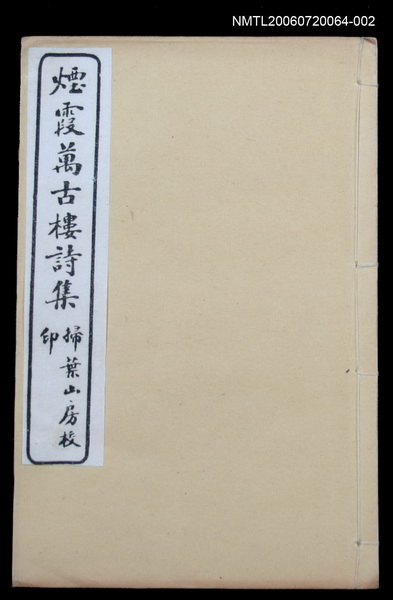 NMTL20060720064-002
煙霞萬古樓詩集
掃葉山房校
印